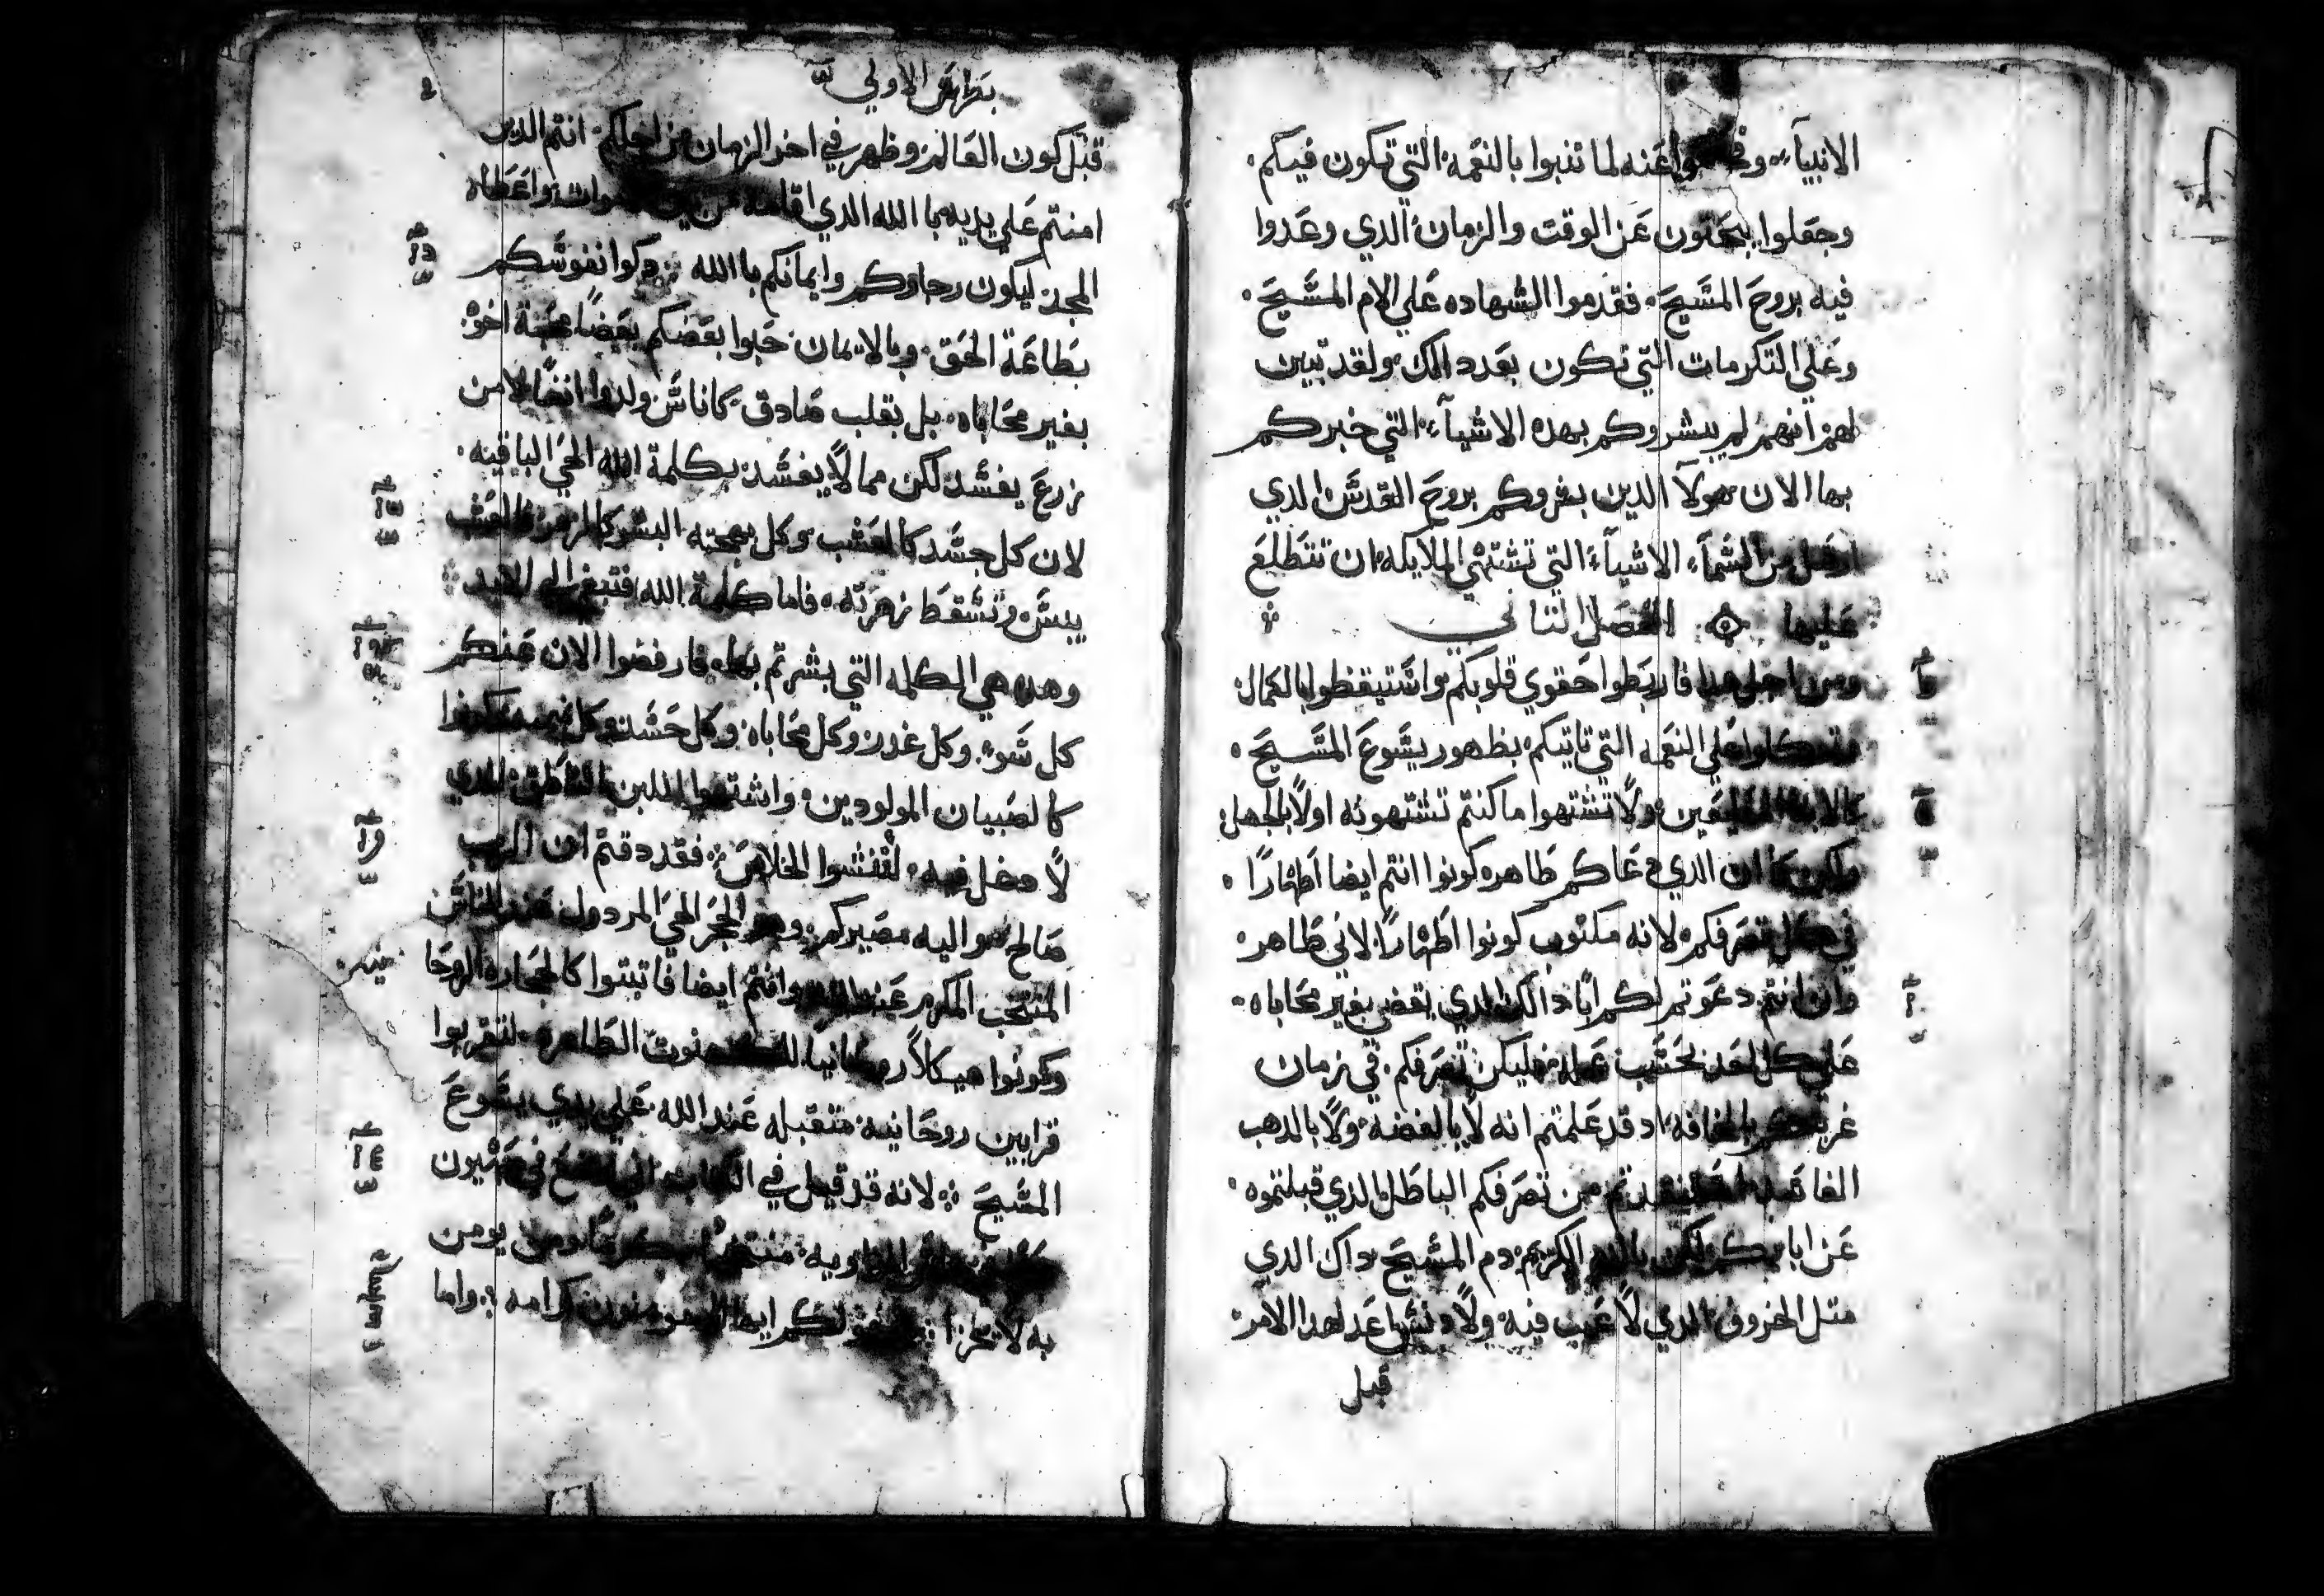 الانبيآء وفحصوا عنه لما تنبوا بالنعمه التي تكون فيكم
وجعلوا يبحثون عن الوقت والزمان الدي وعدوا
فيه بروح المسيح فقدموا الشهاده علي الام المسيح
وعلي التكرمات التي تكون بعد دالك ولقد تبين
لهم انهم لم يبشروكم بهده الاشيآء التي خبركم
بها الان هولآ الدين بشروكم بروح القدس الدي
ارسل من السمآء الاشيآء التي تشتهي الملايكه ان تتطلع
عليها الفصل التاني
ومن اجل هدا فاربطوا حقوي قلوبكم واستيقظوا بالكمال
متوكلوا علي النعمه التي تاتيكم بظهور يسوع المسيح
كالابنا المطيعين ولا تشتهوا ما كنتم تشتهونه اولا بالجهل
ولكن كما ان الدي دعاكم طاهره كونوا انتم ايضا اطهارا
في كل تصرفكم لانه مكتوب كونوا اطهارا لاني طاهر
وان انتم دعوتم لكم ابا دالك الدي يقضي بغير محاباه
علي كل احد بحسب عمله فليكن تصرفكم في زمان
غربتكم بالمخافه اد قد علمتم انه لا بالفضه ولا بالدهب
الفاسد تم من تصرفكم الباطل الدي قبلتموه
عن ابايكم لكن بالدم الكريم دم المسيح داك الدي
متل الخروف الدي لا عيب فيه ولا دنس اعد لهدا الامر
قبل
بطرس الاولي
قبل كون العالم وظهر في اخر الزمان من اجلكم انتم الدين
امنتم علي يديه باالله الدي اقامه من بين الاموات واعطاه
المجد ليكون رجاوكم وايمانكم باالله دكوا نفوسكم
بطاعة الحق وبالايمان حبوا بعضكم بعضا محبة اخوه
بغير محاباه بل بقلب صادق كاناس ولدوا ايضا لا من
زرع يفسد لكن مما لا يفسد بكلمة الله الحي الباقيه
لان كل جسد كالعشب وكل بهجته البشر كالزهرة العشب
يبس وتسقط زهرته فاما كلمة الله فتبقي الي الابد
وهده هي الكلمه التي بشرتم بها فارفضوا الان عنكم
كل سو وكل غدر وكل محاباه وكل حسد وكل نميمه وكونوا
كالصبيان المولودين واشتهوا اللبن الناطق الدي
لا دخل فيه لتنشوا الخلاص فقد دقتم ان الرب
صالح هو اليه مصيركم وهو الحجر الحي المردول عند الناس
المنتخب المكرم عند الله وانتم ايضا فاتبتوا كالحجاره الروحا
نيه
وكونوا هيكلا روحانيا للكهنوت الطاهره لتقربوا
قرابين روحانيه متقبله عند الله علي يدي يسوع
المسيح لانه قد قيل في الكتاب اني اضع في صهيون
الزاويه منتخب كريما ومن يومن
به لا يخزا لكم ايها المومنون كرامه واما